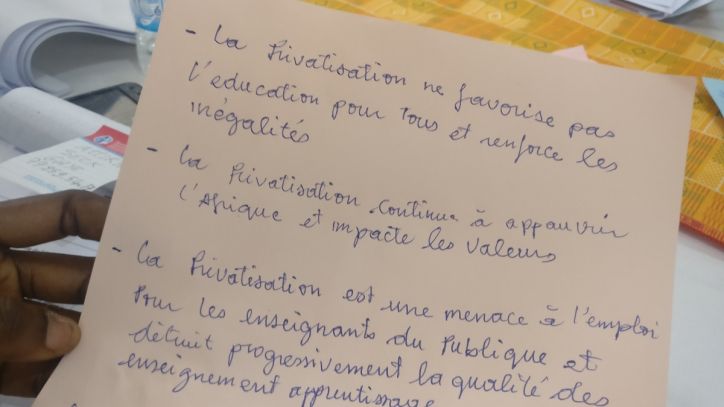 - La Privatisation ne favorise pas
l'education pour Tous et renforce les
inégalités
- La Privatisation continue à appauvrir
l'Afrique et impacte les valeurs
- La Privatisation est une menace à l'emploi
Pour les enseignants du Publique et
détruit progressivement la qualité des
enseignement apprentissage